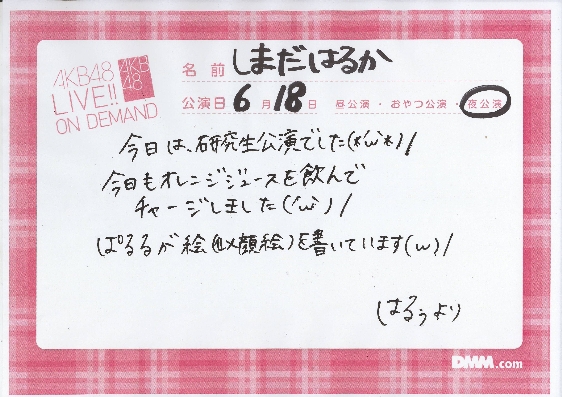 AKB48
LIVE!!
ON DEMAND
AKB
48
名前 しまだはるか
公演日 6月18日 昼公演・おやつ公演・夜公演
今日は、研究生公演でした(*'ω'*)/
今日もオレンジジュースを飲んで
チャージしました('ω')/
ぱるるが絵(似顔絵)を書いています(ω)/
はるぅより
DMM.com